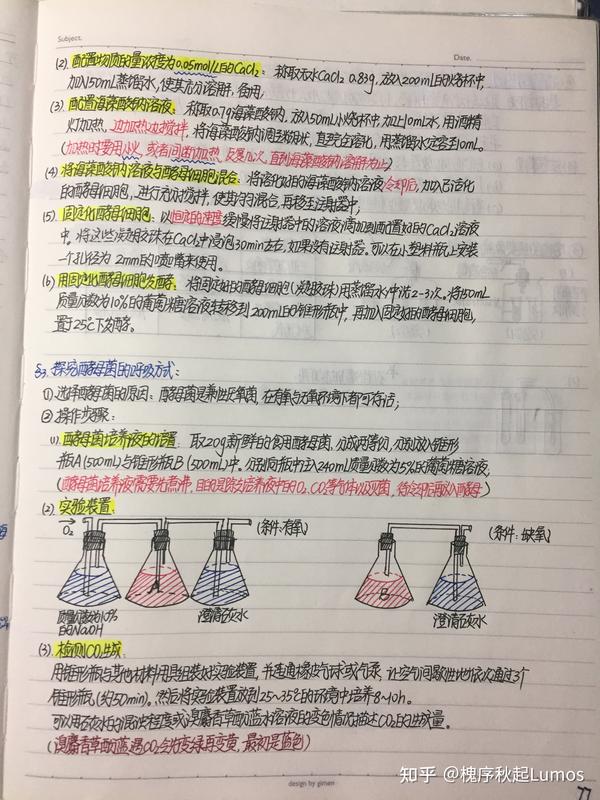 Subject.
Date.
(2). 配置物质的量浓度为0.05mol/L的CaCl₂：称取无水CaCl₂ 0.83g，放入200mL的烧杯中，
加入150mL蒸馏水，使其充分溶解，备用。
(3). 配置海藻酸钠溶液：称取0.7g海藻酸钠，放入50mL小烧杯中，加上10mL水，用酒精
灯加热，边加热边搅拌，将海藻酸钠调至糊状，直至完全溶化，用蒸馏水定容至10mL。
(加热时要用小火，或者间断加热，反复几次，直到海藻酸钠溶解为止)
(4) 将海藻酸钠溶液与酵母细胞混合：将溶化好的海藻酸钠溶液冷却后，加入已活化
的酵母细胞，进行充分搅拌，使其均匀混合，再移至注射器中；
(5). 固定化酵母细胞：以恒定的速度缓慢将注射器中的溶液滴加到配置好的CaCl₂溶液
中。将这些凝胶珠在CaCl₂中浸泡30min左右，如果没有注射器，可以在小塑料瓶上安装
一个孔径为2mm的喷嘴来使用。
(6) 用固定化酵母细胞发酵：将固定好的酵母细胞(凝胶珠)用蒸馏水冲洗2-3次。将150mL
质量分数为10%的葡萄糖溶液转移到200mL的锥形瓶中，再加入固定好的酵母细胞，
置于25℃下发酵。
§3. 探究酵母菌的呼吸方式：
① 选择酵母菌的原因：酵母菌是兼性厌氧菌，在有氧与无氧环境下都可存活；
② 操作步骤：
(1). 酵母菌培养液的配置. 取20g新鲜的食用酵母菌，分成两等份，分别放入锥形
瓶A(500mL)与锥形瓶B(500mL)中。分别向瓶中注入240mL质量分数为5%的葡萄糖溶液，
(酵母菌培养液需要先煮沸，目的是除去培养液中的O₂、CO₂等气体以及灭菌，待冷却后再放入酵母)
(2) 实验装置：
O₂
(条件：有氧)
(条件：缺氧)
A
B
质量分数为10%
的NaOH
澄清石灰水
澄清石灰水
(3). 检测CO₂生成：
用锥形瓶与其他材料用具组装好实验装置，并连通橡皮气球或气泵，让空气间歇性地依次通过3个
锥形瓶(约50min)。然后将实验装置放到25~35℃的环境中培养8~10h。
可以用石灰水的混浊程度或溴麝香草酚蓝水溶液的变色情况描述CO₂的生成量。
(溴麝香草酚蓝遇CO₂会先变绿再变黄，最初是蓝色)
design by gimen
知乎 @槐序秋起Lumos
77